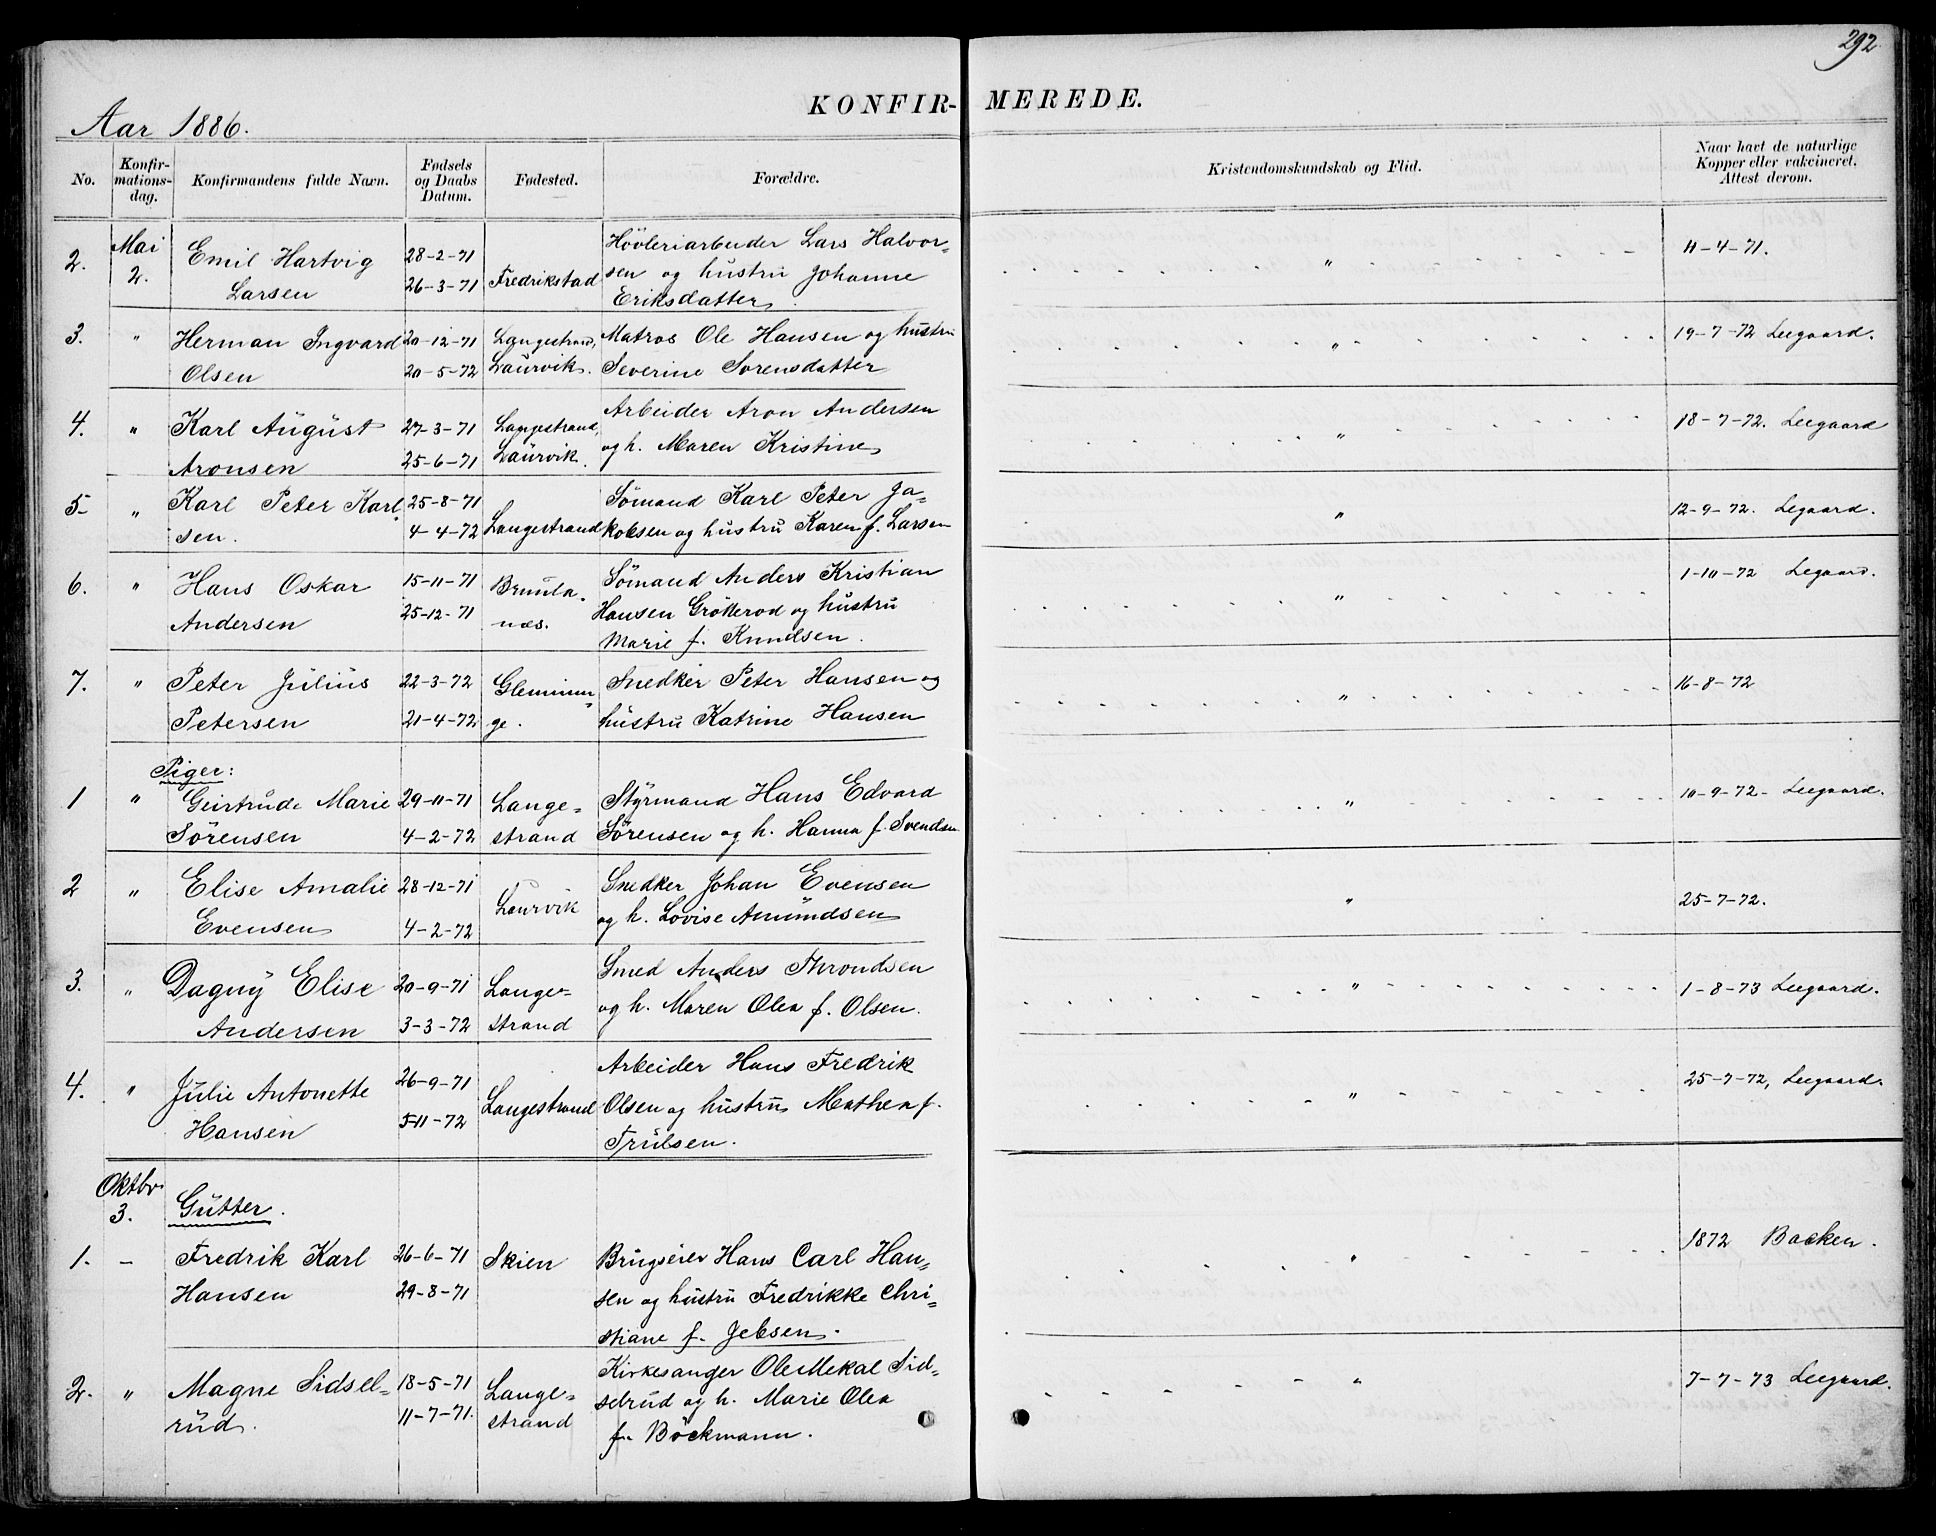 292.
KONFIR-MEREDE.
Aar 1886.
No. Konfir-mations-dag. Konfirmandens fulde Navn. Fødsels og Daabs Datum. Fødested. Forældre. Kristendomskundskab og Flid. Naar havt de naturlige Kopper eller vakcineret. Attest derom.
2. Mai 2. Emil Hartvig 28-2-71 Høvleriarbeider Lars Halvor= " 11-4-71.
Larsen 26-3-71 Fredrikstad sen og hustru Johanne
Eriksdatter.
3. " Herman Ingvard 20-12-71 Langestrand, Matros Ole Hansen og hustru " 19-7-72 Leegaard.
Olsen 20-5-72 Laurvik. Severine Sorensdatter
4. " Karl August 27-3-71 Langestrand, Arbeider Aron Andersen " 18-7-72. Leegaard
Aronsen 25-6-71 Laurvik. og h. Maren Kristine
5- " Karl Peter Karl 25-8-71 Sömand Karl Peter Ja= " 12-9-72. Legaard.
sen. 4-4-72 Langestrand kobsen og hustru Karen f. Larsen
6. " Hans Oskar 15-11-71 Brunla- Sömand Anders Kristian " 1-10-72 Legaard.
Andersen 25-12-71 næs. Hansen Grötterod og hustru
Marie f. Knudsen.
7. " Peter Julius 22-3-72 Glemmen= Snedker Peter Hansen og " 16-8-72
Petersen 21-4-72 ge. hustru Katrine Hansen
Piger:
1 " Geirtrude Marie 29-11-71 Lange= Styrmand Hans Edvard " 10-9-72- Leegaard.
Sörensen 4-2-72 strand Sörensen og h. Hanna f. Svendsen
2 " Elise Amalie 28-12-71 Laurvik Snedker Johan Evensen " 25-7-72.
Evensen 4-2-72 og h. Lovise Amundsen
3. " Dagny Elise 20-9-71 Lange= Smed Anders Throndsen " 1-8-73 Leegaard.
Andersen 3-3-72 strand og h. Maren Olea f. Olsen.
4. " Julie Antonette 26-9-71 Langestrand Arbeider Hans Fredrik " 25-7-72, Leegaard.
Hansen 5-11-72 Olsen og hustru Mathea f.
Trulsen.
Oktbr. 3. Gutter.
1. - Fredrik Karl 26-6-71 Skien Brugseier Hans Carl Han= " 1872 Backen.
Hansen 29-8-71 sen og hustru Fredrikke Chri=
stiane f. Jebsen.
2. " Magne Sidsel= 18-5-71 Lange= Kirkesanger Ole Mekal Sid= " 7-7-73 Leegaard.
rud. 11-7-71. strand selrud og h. Marie Olea
f. Böckmann.